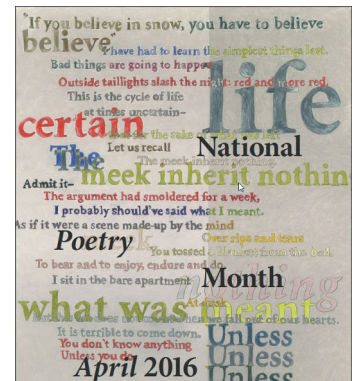 "If you believe in snow, you have to believe
believe"
I have had to learn the simplest things last.
Bad things are going to happen
Outside taillights slash the night: red and more red,
life
This is the cycle of life
at times uncertain–
certain
for the sake of
Let us recall
National
The
The meek inherit nothing.
meek inherit nothin
Admit it–
The argument had smoldered for a week,
I probably should've said what I meant.
As if it were a scene made-up by the mind
Poetry
Over rips and tears
You tossed a blanket from the bed,
To bear and to enjoy, endure and do
I sit in the bare apartment
Month
nothing
At dusk
what was meant
we fall out of our hearts.
It is terrible to come down.
Unless
You don't know anything
Unless you do
Unless
April 2016
Unless